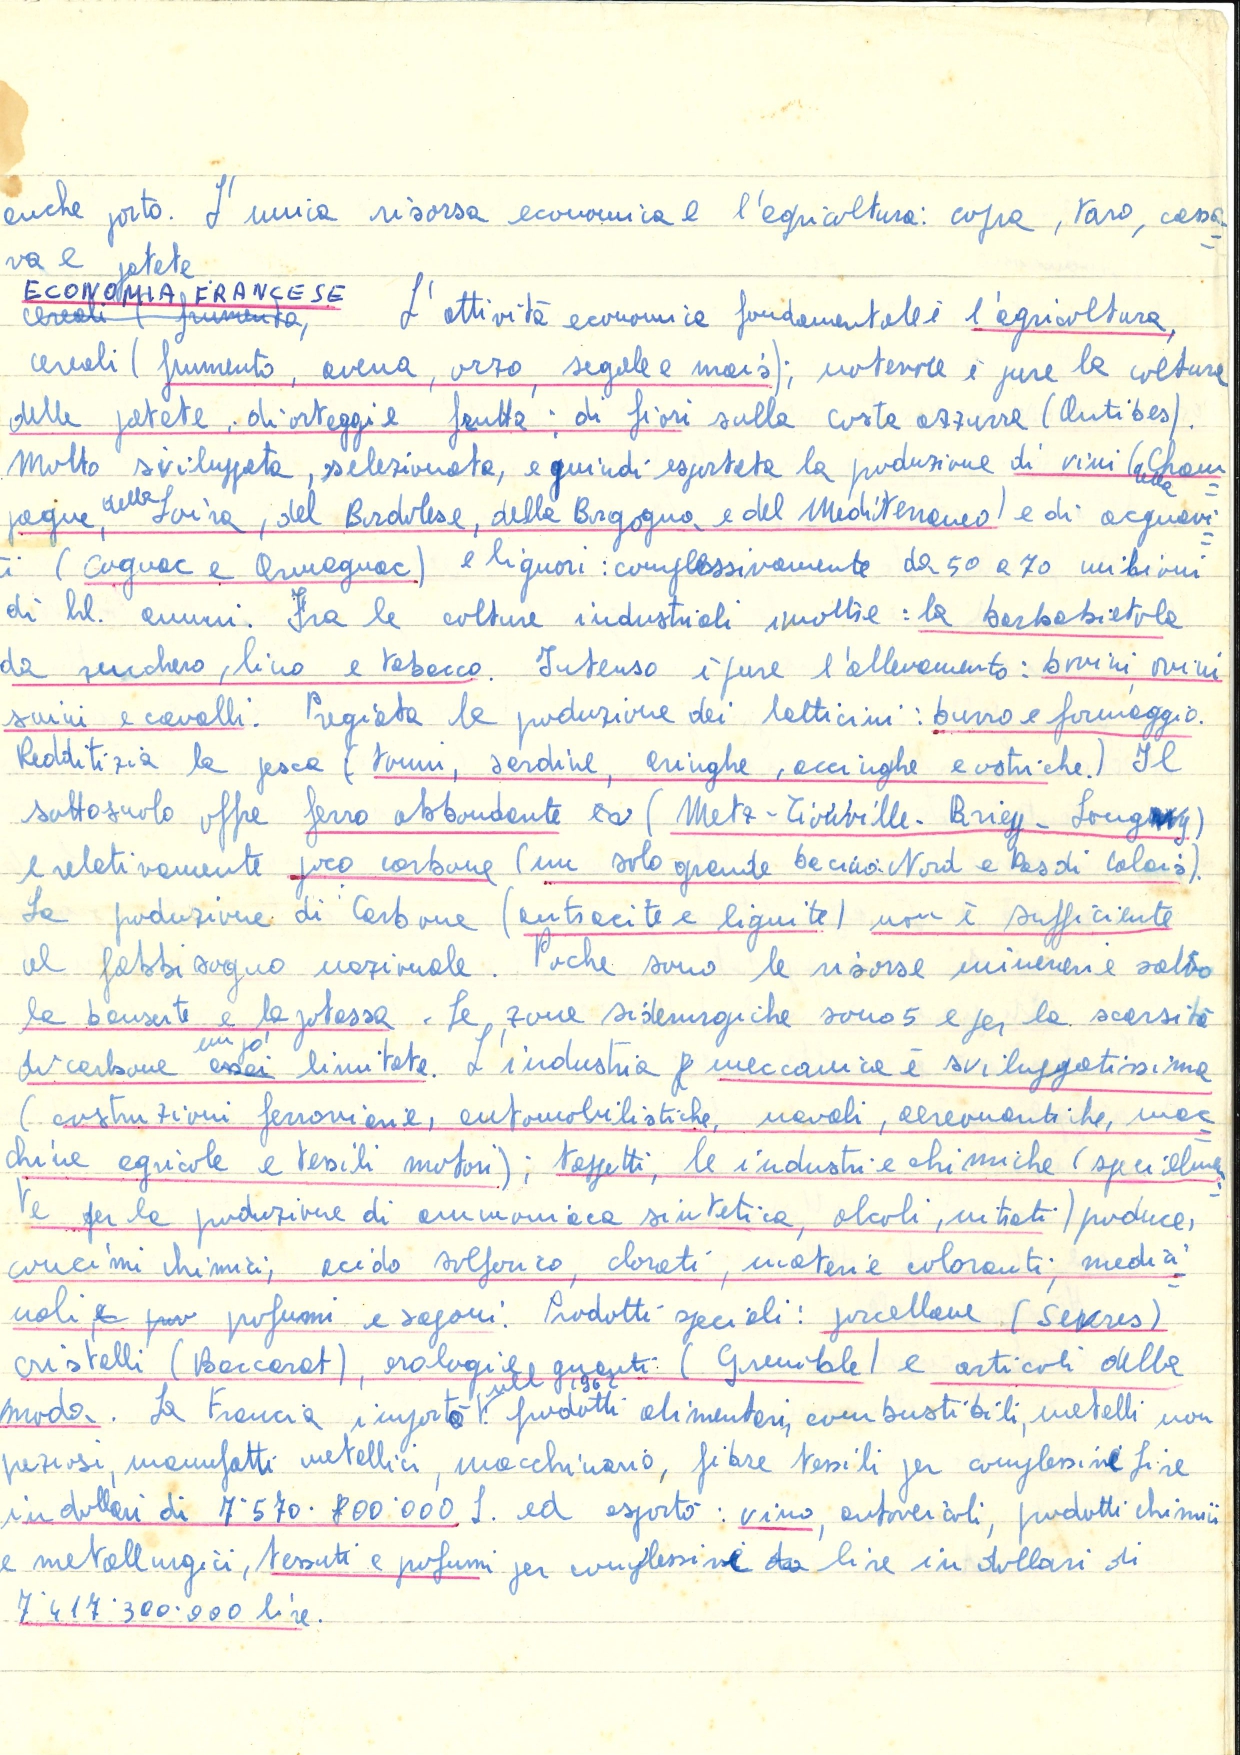 anche porto. L'unica risorsa economica è l'agricoltura: copra, taro, cassa=
va e patate
ECONOMIA FRANCESE
cereali ( frumento, L'attività economica fondamentale è l'agricoltura,
cereali ( frumento, avena, orzo, segale e mais); notevole è pure la coltura
delle patate, di ortaggi e frutta; di fiori sulla costa azzurra (Antibes).
Molto sviluppata, selezionata, e quindi esportata la produzione di vini (della Cham=
pagne, della Loira, del Bordolese, della Borgogna e del Mediterraneo) e di acquavi=
ti (Cognac e Armagnac) e liquori: complessivamente da 50 a 70 milioni
di hl. annui. Fra le colture industriali inoltre: la barbabietola
da zucchero, lino e tabacco. Intenso è pure l'allevamento: bovini, ovini
suini e cavalli. Pregiata la produzione dei latticini: burro e formaggio.
Redditizia la pesca (tonni, sardine, aringhe, acciughe e ostriche.) Il
sottosuolo offre ferro abbondante (Metz - Tionville - Briey - Longwy)
e relativamente poco carbone (un solo grande bacino: Nord e Pas di Calais).
La produzione di Carbone (antracite e lignite) non è sufficiente
al fabbisogno nazionale. Poche sono le risorse minerarie salvo
la bauxite e la potassa. Le zone siderurgiche sono 5 e per la scarsità
di carbone assai un po' limitate. L'industria meccanica è sviluppatissima
(costruzioni ferroviarie, automobilistiche, navali, aeronautiche, mac=
chine agricole e tessili motori); tappeti, le industrie chimiche (specialmen=
te per la produzione di ammoniaca sintetica, alcoli, nitrati) produce,
concimi chimici, acido solforico, clorati, materie coloranti, medici=
nali e profumi e saponi. Prodotti speciali: porcellane (Sevres)
cristalli (Baccarat), orologi e guanti (Grenoble) e articoli della
moda. La Francia importò nel 1962 prodotti alimentari, combustibili, metelli non
preziosi, manufatti metallici, macchinario, fibre tessili per complessive lire
in dollari di 7·570·800·000 L. ed esportò: vino, autoveicoli, prodotti chimici
e metallurgici, tessuti e profumi per complessive da lire in dollari di
7·417·300·000 lire.